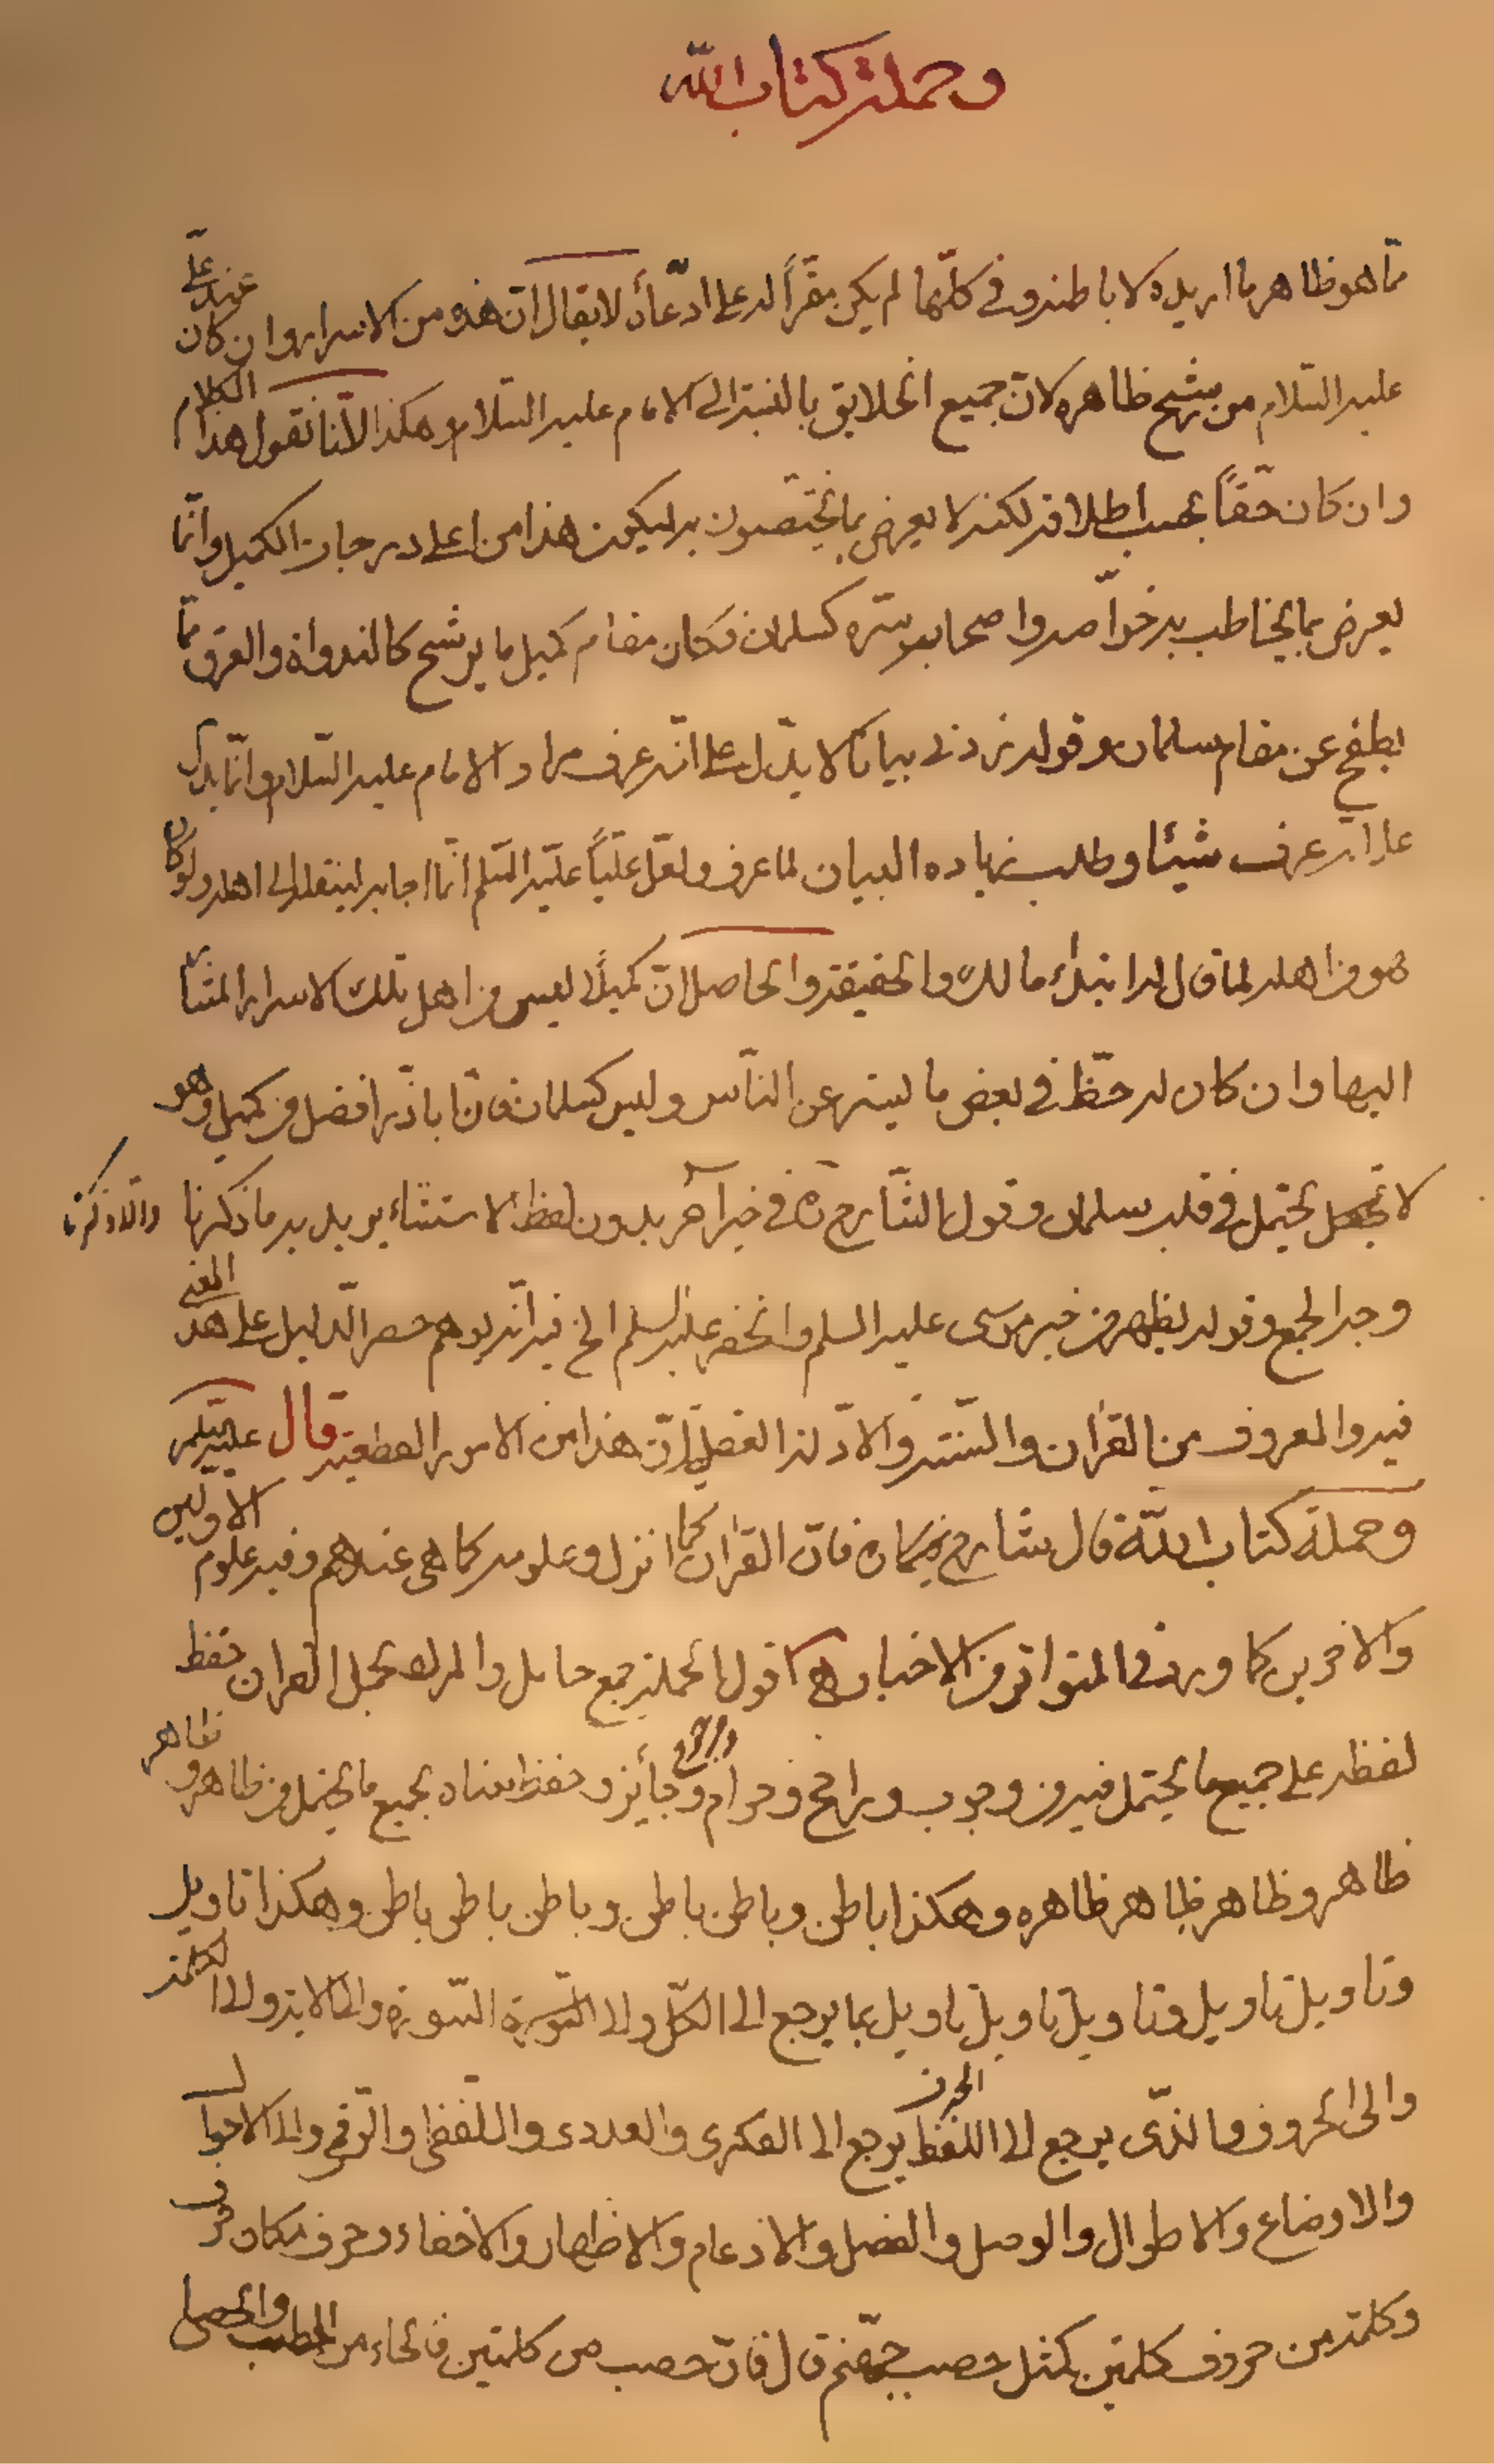 وحملة كتاب الله
مما هو ظاهر ما اريد لا باطنه وفي كلها لم يكن مقراً له على ادعائه لا يقال ان هذه من الاسرار وان كان عند علي
عليه السلام من يرشح ظاهره لان جميع الخلايق بالنسبة الى الامام عليه السلام هكذا لانا نقول هذا الكلام
وان كان حقاً بحسب اطلاقه لكنه لا يعرض بما يختصون به ليكون هذا من اعلى درجات الكميل وانما
يعرض بما يخاطب به خواصه واصحاب سره كسلمان فكان مقام كميل ما يرشح كالنداوة والعرق مما
يطفح عن مقام سلمان وقوله زدني بيانا لا يدل على انه عرف مراد الامام عليه السلام وانما يدل
على انه عرف شيئا وطلب زيادة البيان لما عرف ولعل علياً عليه السلم انما اجابه لينقله الى اهله ولو كان
هو من اهله لما قال له ابتداء مالك والحقيقة والحاصل ان كميلاً ليس من اهل تلك الاسرار المشار
اليها وان كان له حظ في بعض ما يستر عن الناس وليس كسلمان فان اباذر افضل من كميل وهو
لا يحتمل في قلب سلمان وقول الشارح ره في خبر آخر بدون لفظ الاستثناء يريد به ما ذكرنا
وجه الجمع وقوله يظهر من خبر موسى عليه السلم والخضر عليه السلم الخ فيه انه يوهم حصر الدليل على هذا المعنى
فيه والمعروف من القران والسنة والادلة العقلية ان هذا من الامور القطعية قال عليه السلم
وحملة كتاب الله قال الشارح ره فان القران كما انزل وعلومه كما هي عندهم وفيه علوم الاولين
والاخرين كما ورد في المتواتر من الاخبار اقول الحملة جمع حامل والمراد بحمل القران حفظ
لفظه على جميع ما يحتمل فيه من وجوب وراجح وحرام وجايز وحفظ معناه بجميع ما يحتمل من ظاهر وظاهر
ظاهر وظاهر ظاهر ظاهره وهكذا باطن وباطن باطن وباطن باطن باطن وهكذا تاويل
وتاويل تاويل وتاويل تاويل تاويل بما يرجع الى الكل والى السورة والى الاية والى الكلمة
والى الحروف والذي يرجع الى اللفظ يرجع الى الفكري والعددي واللفظي والرقمي والى الاحوال
والاوضاع والاطوال والوصل والفصل والادغام والاظهار والاخفاء وحرف مكان حرف
وكلمة من حروف كلمتين كمثل حصب جهنم قال فان حصب من كلمتين فالحاء من الحطب